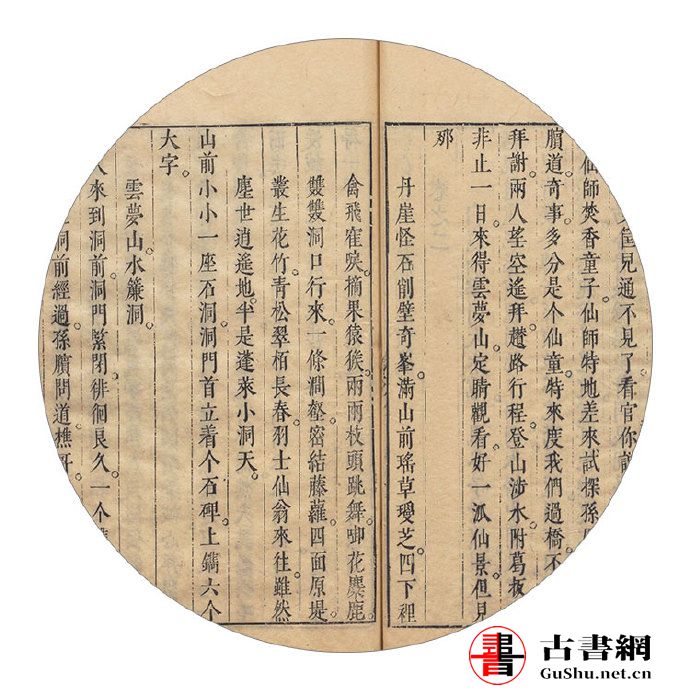 筐兒通不見了看官你
仙師焚香童子仙師特地差來試探孫
臏道奇事多分是个仙童特來度我們過橋不
拜謝兩人望空遙拜趲路行程登山涉水附葛扳
非止一日來得雲夢山定睛觀看好一派仙景但見
那
丹崖怪石削壁奇峯。滿山前瑤草璦芝。四下裡
禽飛寉唳。摘果猿猴。兩兩枝頭跳舞。啣花麋鹿
雙雙洞口行來。一條澗壑。密結藤蘿。四面原堤
叢生花竹。青松翠栢長春。羽士仙翁來往。雖然
塵世逍遙地。半是蓬萊小洞天。
山前小小一座石洞。洞門首立着个石碑。上鐫六个
大字。
雲夢山水簾洞。
人來到洞前。洞門緊閉。徘徊良久。一个
洞前經過。孫臏問道。樵哥。
古書網
GuShu.net.cn